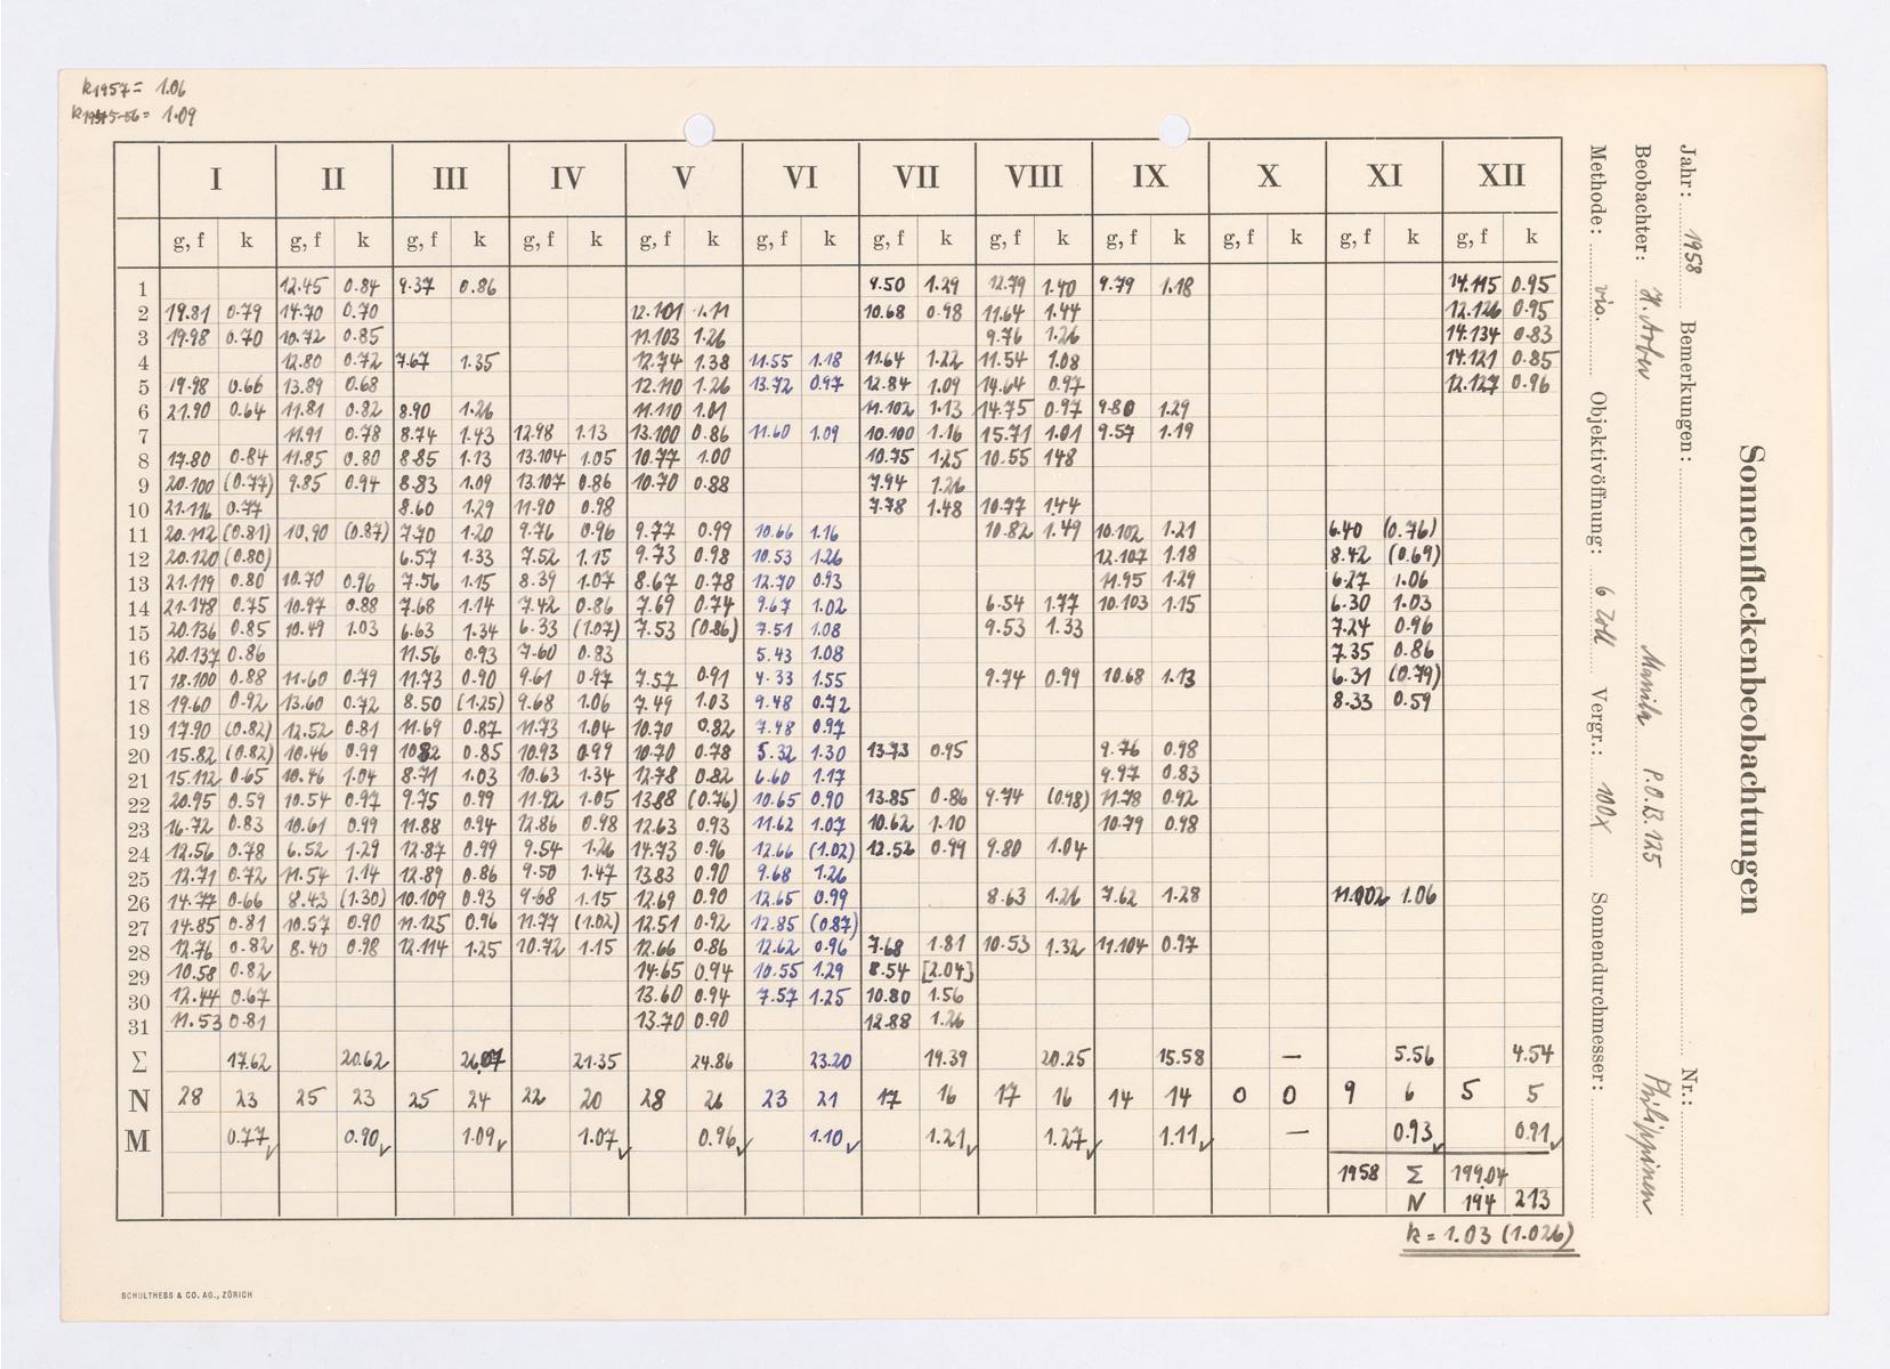 k1957= 1.06
k1955-56= 1.09
I II III IV V VI VII VIII IX X XI XII
g, f k g, f k g, f k g, f k g, f k g, f k g, f k g, f k g, f k g, f k g, f k g, f k
1 12.45 0.84 9.37 0.86 9.50 1.29 12.79 1.40 9.79 1.18 14.115 0.95
2 19.81 0.79 14.70 0.70 12.101 1.11 10.68 0.98 11.64 1.44 12.126 0.95
3 19.98 0.70 10.72 0.85 11.103 1.26 9.76 1.26 14.134 0.83
4 12.80 0.72 7.67 1.35 12.74 1.38 11.55 1.18 11.64 1.22 11.54 1.08 14.121 0.85
5 19.98 0.66 13.89 0.68 12.110 1.26 13.72 0.97 12.84 1.09 14.64 0.97 12.127 0.96
6 21.90 0.64 11.81 0.82 8.90 1.26 11.110 1.01 11.102 1.13 14.75 0.97 9.80 1.29
7 11.91 0.78 8.74 1.43 12.98 1.13 13.100 0.86 11.60 1.09 10.100 1.16 15.71 1.01 9.57 1.19
8 17.80 0.84 11.85 0.80 8.85 1.13 13.104 1.05 10.77 1.00 10.75 1.25 10.55 148
9 20.100 (0.77) 9.85 0.94 8.83 1.09 13.107 0.86 10.70 0.88 7.94 1.26
10 21.116 0.77 8.60 1.29 11.90 0.98 7.78 1.48 10.77 1.44
11 20.112 (0.81) 10.90 (0.87) 7.70 1.20 9.76 0.96 9.77 0.99 10.66 1.16 10.82 1.49 10.102 1.21 6.40 (0.76)
12 20.120 (0.80) 6.57 1.33 7.52 1.15 9.73 0.98 10.53 1.26 12.107 1.18 8.42 (0.69)
13 21.119 0.80 10.70 0.96 7.56 1.15 8.39 1.07 8.67 0.78 12.70 0.93 11.95 1.29 6.27 1.06
14 21.148 0.75 10.97 0.88 7.68 1.14 7.42 0.86 7.69 0.74 9.67 1.02 6.54 1.77 10.103 1.15 6.30 1.03
15 20.136 0.85 10.49 1.03 6.63 1.34 6.33 (1.07) 7.53 (0.86) 7.51 1.08 9.53 1.33 7.24 0.96
16 20.137 0.86 11.56 0.93 7.60 0.83 5.43 1.08 7.35 0.86
17 18.100 0.88 11.60 0.79 11.73 0.90 9.61 0.97 7.57 0.91 4.33 1.55 9.74 0.99 10.68 1.13 6.31 (0.79)
18 19.60 0.92 13.60 0.72 8.50 (1.25) 9.68 1.06 7.49 1.03 9.48 0.72 8.33 0.59
19 17.90 (0.82) 12.52 0.81 11.69 0.87 11.73 1.04 10.70 0.82 7.48 0.97
20 15.82 (0.82) 10.46 0.99 10.82 0.85 10.93 0.99 10.70 0.78 5.32 1.30 13.73 0.95 9.76 0.98
21 15.112 0.65 10.46 1.04 8.71 1.03 10.63 1.34 12.78 0.82 6.60 1.17 9.97 0.83
22 20.95 0.59 10.54 0.97 9.75 0.99 11.92 1.05 13.88 (0.76) 10.65 0.90 13.85 0.86 9.74 (0.98) 11.78 0.92
23 16.72 0.83 10.61 0.99 11.88 0.94 12.86 0.98 12.63 0.93 11.62 1.07 10.62 1.10 10.79 0.98
24 12.56 0.78 6.52 1.29 12.87 0.99 9.54 1.26 14.73 0.96 12.66 (1.02) 12.52 0.99 9.80 1.04
25 12.71 0.72 11.54 1.14 12.89 0.86 9.50 1.47 13.83 0.90 9.68 1.26
26 14.77 0.66 8.43 (1.30) 10.109 0.93 9.68 1.15 12.69 0.90 12.65 0.99 8.63 1.26 7.62 1.28 11.002 1.06
27 14.85 0.81 10.57 0.90 11.125 0.96 11.77 (1.02) 12.51 0.92 12.85 (0.87)
28 12.76 0.82 8.40 0.98 12.114 1.25 10.72 1.15 12.66 0.86 12.62 0.96 7.68 1.81 10.53 1.32 11.104 0.97
29 10.58 0.82 14.65 0.94 10.55 1.29 8.54 [2.04]
30 12.44 0.67 13.60 0.94 7.57 1.25 10.80 1.56
31 11.53 0.81 13.70 0.90 12.88 1.26
Σ 17.62 20.62 26.07 21.35 24.86 23.20 19.39 20.25 15.58 — 5.56 4.54
N 28 23 25 23 25 24 22 20 28 26 23 21 17 16 17 16 14 14 0 0 9 6 5 5
M 0.77✓ 0.90✓ 1.09✓ 1.07✓ 0.96✓ 1.10✓ 1.21✓ 1.27✓ 1.11✓ — 0.93✓ 0.91✓
1958 Σ 199.04
N 194 213
k = 1.03 (1.026)
SCHULTHESS & CO. AG., ZÜRICH
Sonnenfleckenbeobachtungen
Jahr: 1958 Bemerkungen: Nr.:
Beobachter: Manila P.O.B. 125 Philippinen
Methode: vis. Objektivöffnung: 6 Zoll Vergr.: 100x Sonnendurchmesser: